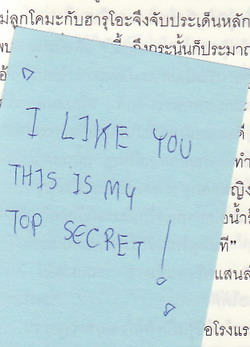 ม่ลูกโคมะกับฮารุโอะจึงจับประเด็นหลัก
ถึงกระนั้นก็ประมาณ
I LIKE YOU
THIS IS MY
TOP SECRET!
ที่”
แสนส
อโรงแร